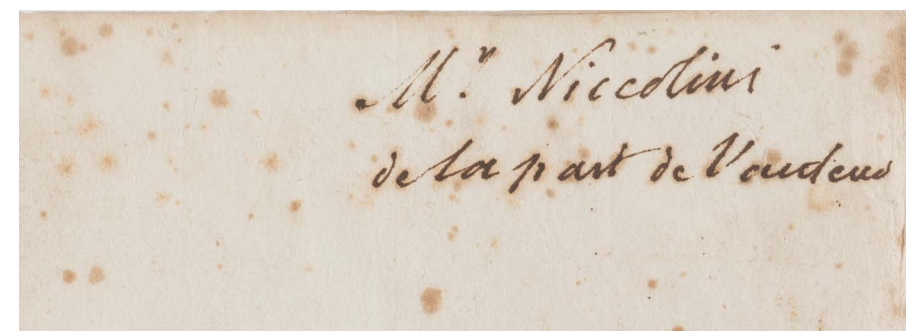 Mr. Niccolini
de la part de l'auteur